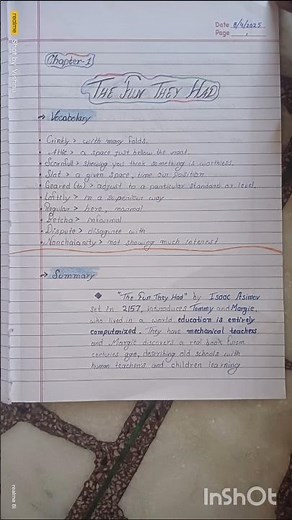 Date 8/4/2025
Page
Chapter-1
THE FUN THEY HAD
→ Vocabulary
• Crinkly > with many folds.
• Attic > a space just below the roof.
• Scornful > showing you think something is worthless.
• Slot > a given space, time or position
• Geared (to) > adjust to a particular standard or level.
• Loftily > in a superior way
• Regular > here, normal
• Betcha > informal
• Dispute > disagree with
• Nonchalantly > not showing much interest
→ Summary
"The Fun They Had" by Isaac Asimov
set in 2157, introduces Tommy and Margie,
who lived in a world education is entirely
computerized. They have mechanical teachers
and Margie discovers a real book from
centuries ago, describing old schools with
human teachers and children learning
realme
InShOt